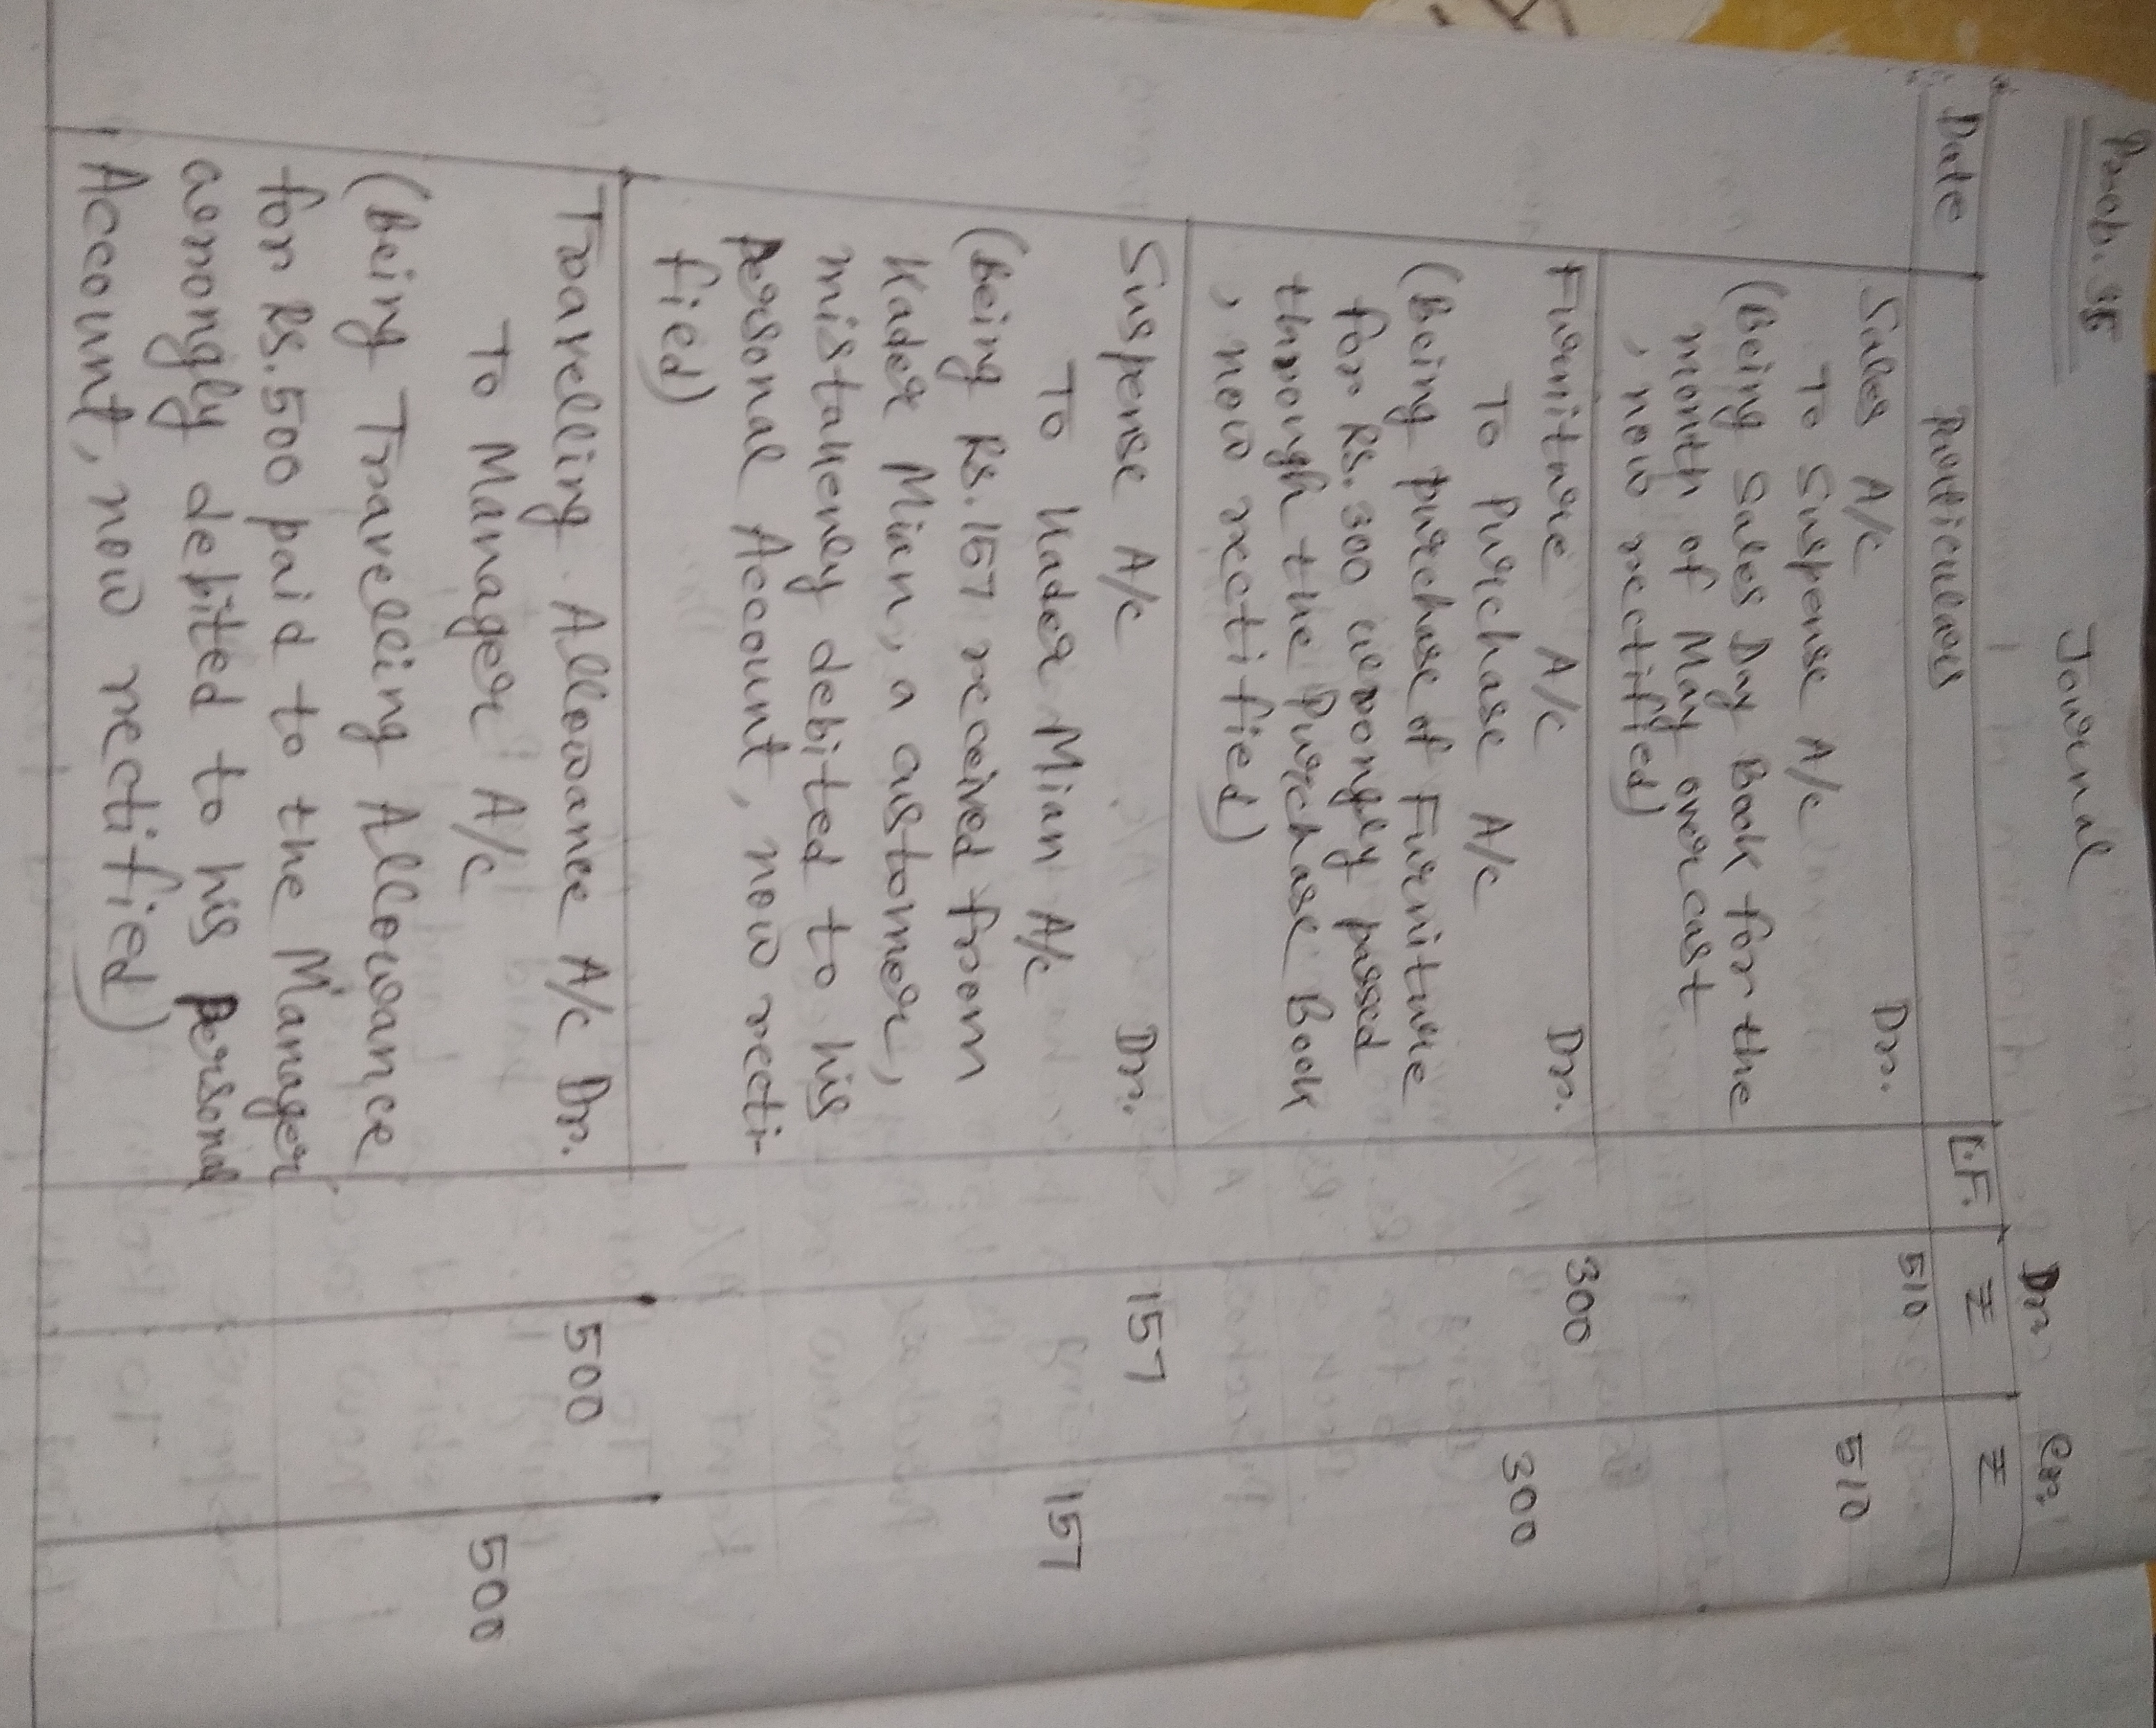 Journal
Dr. Cr.
Date Particulars L.F. ₹ ₹
Sales A/c Dr. 510
To Suspense A/c 510
(Being Sales Day Book for the
month of May overcast
, now rectified)
Furniture A/c Dr. 300
To Purchase A/c 300
(Being purchase of Furniture
for Rs. 300 wrongly passed
through the Purchase Book
, now rectified)
Suspense A/c Dr. 157
To Kader Mian A/c 157
(Being Rs. 157 received from
Kader Mian, a customer,
mistakenly debited to his
personal Account, now recti-
fied)
Travelling Allowance A/c Dr. 500
To Manager A/c 500
(Being Travelling Allowance
for Rs. 500 paid to the Manager
wrongly debited to his personal
Account, now rectified)